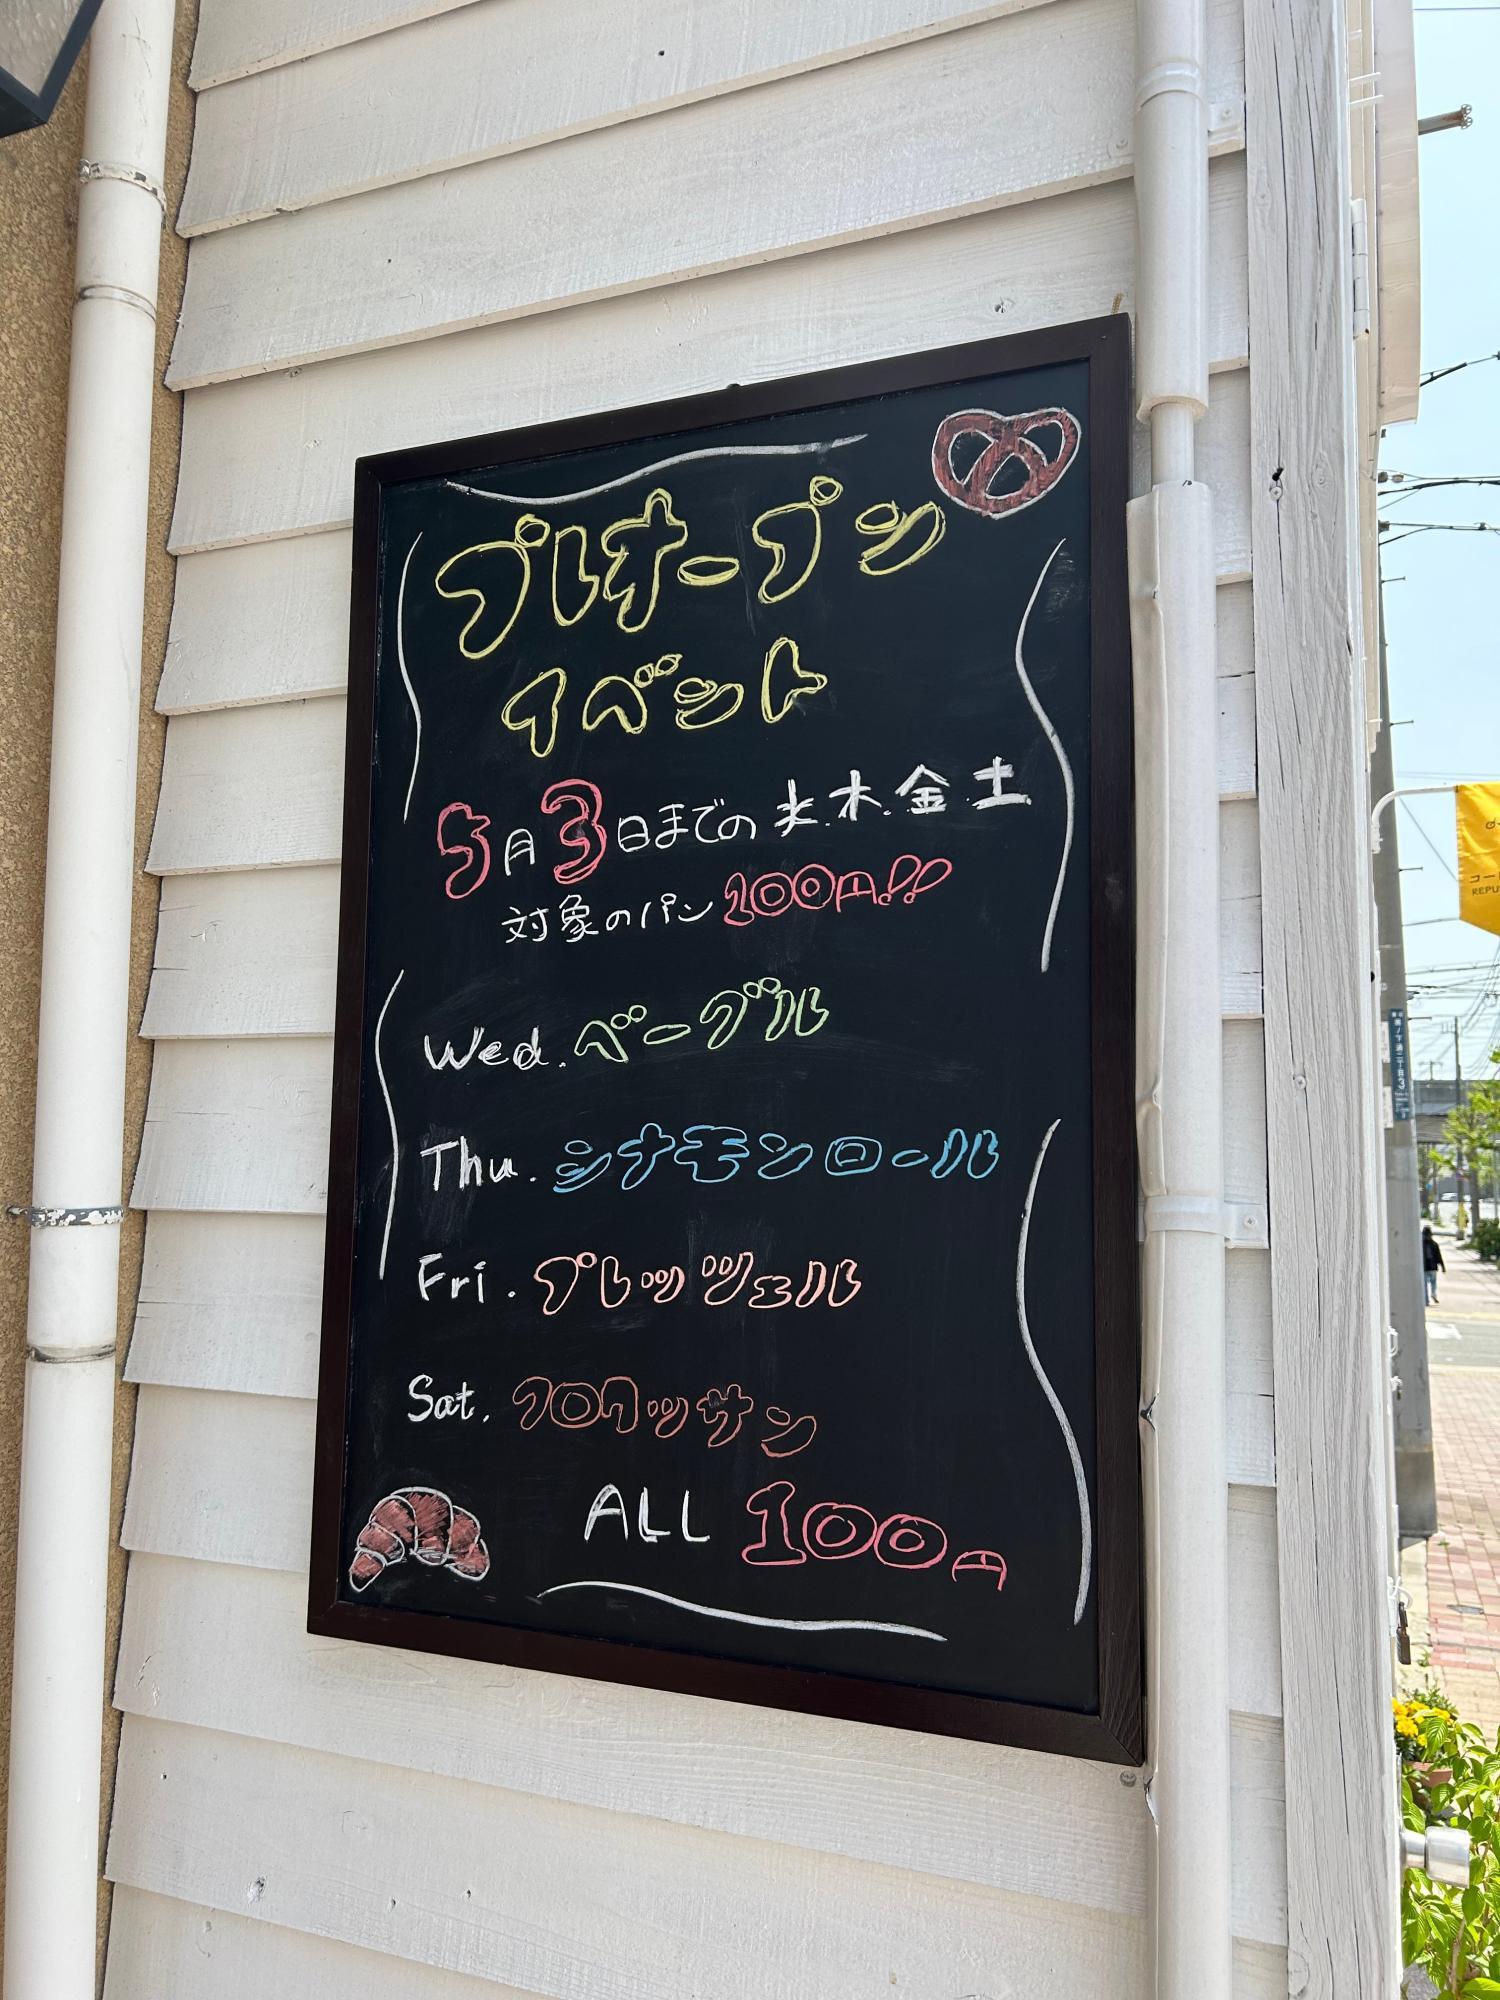 プレオープン
イベント
5月3日までの水.木.金.土
対象のパン100円!!
Wed.ベーグル
Thu.シナモンロール
Fri.プレッツェル
Sat.クロワッサン
ALL 100円